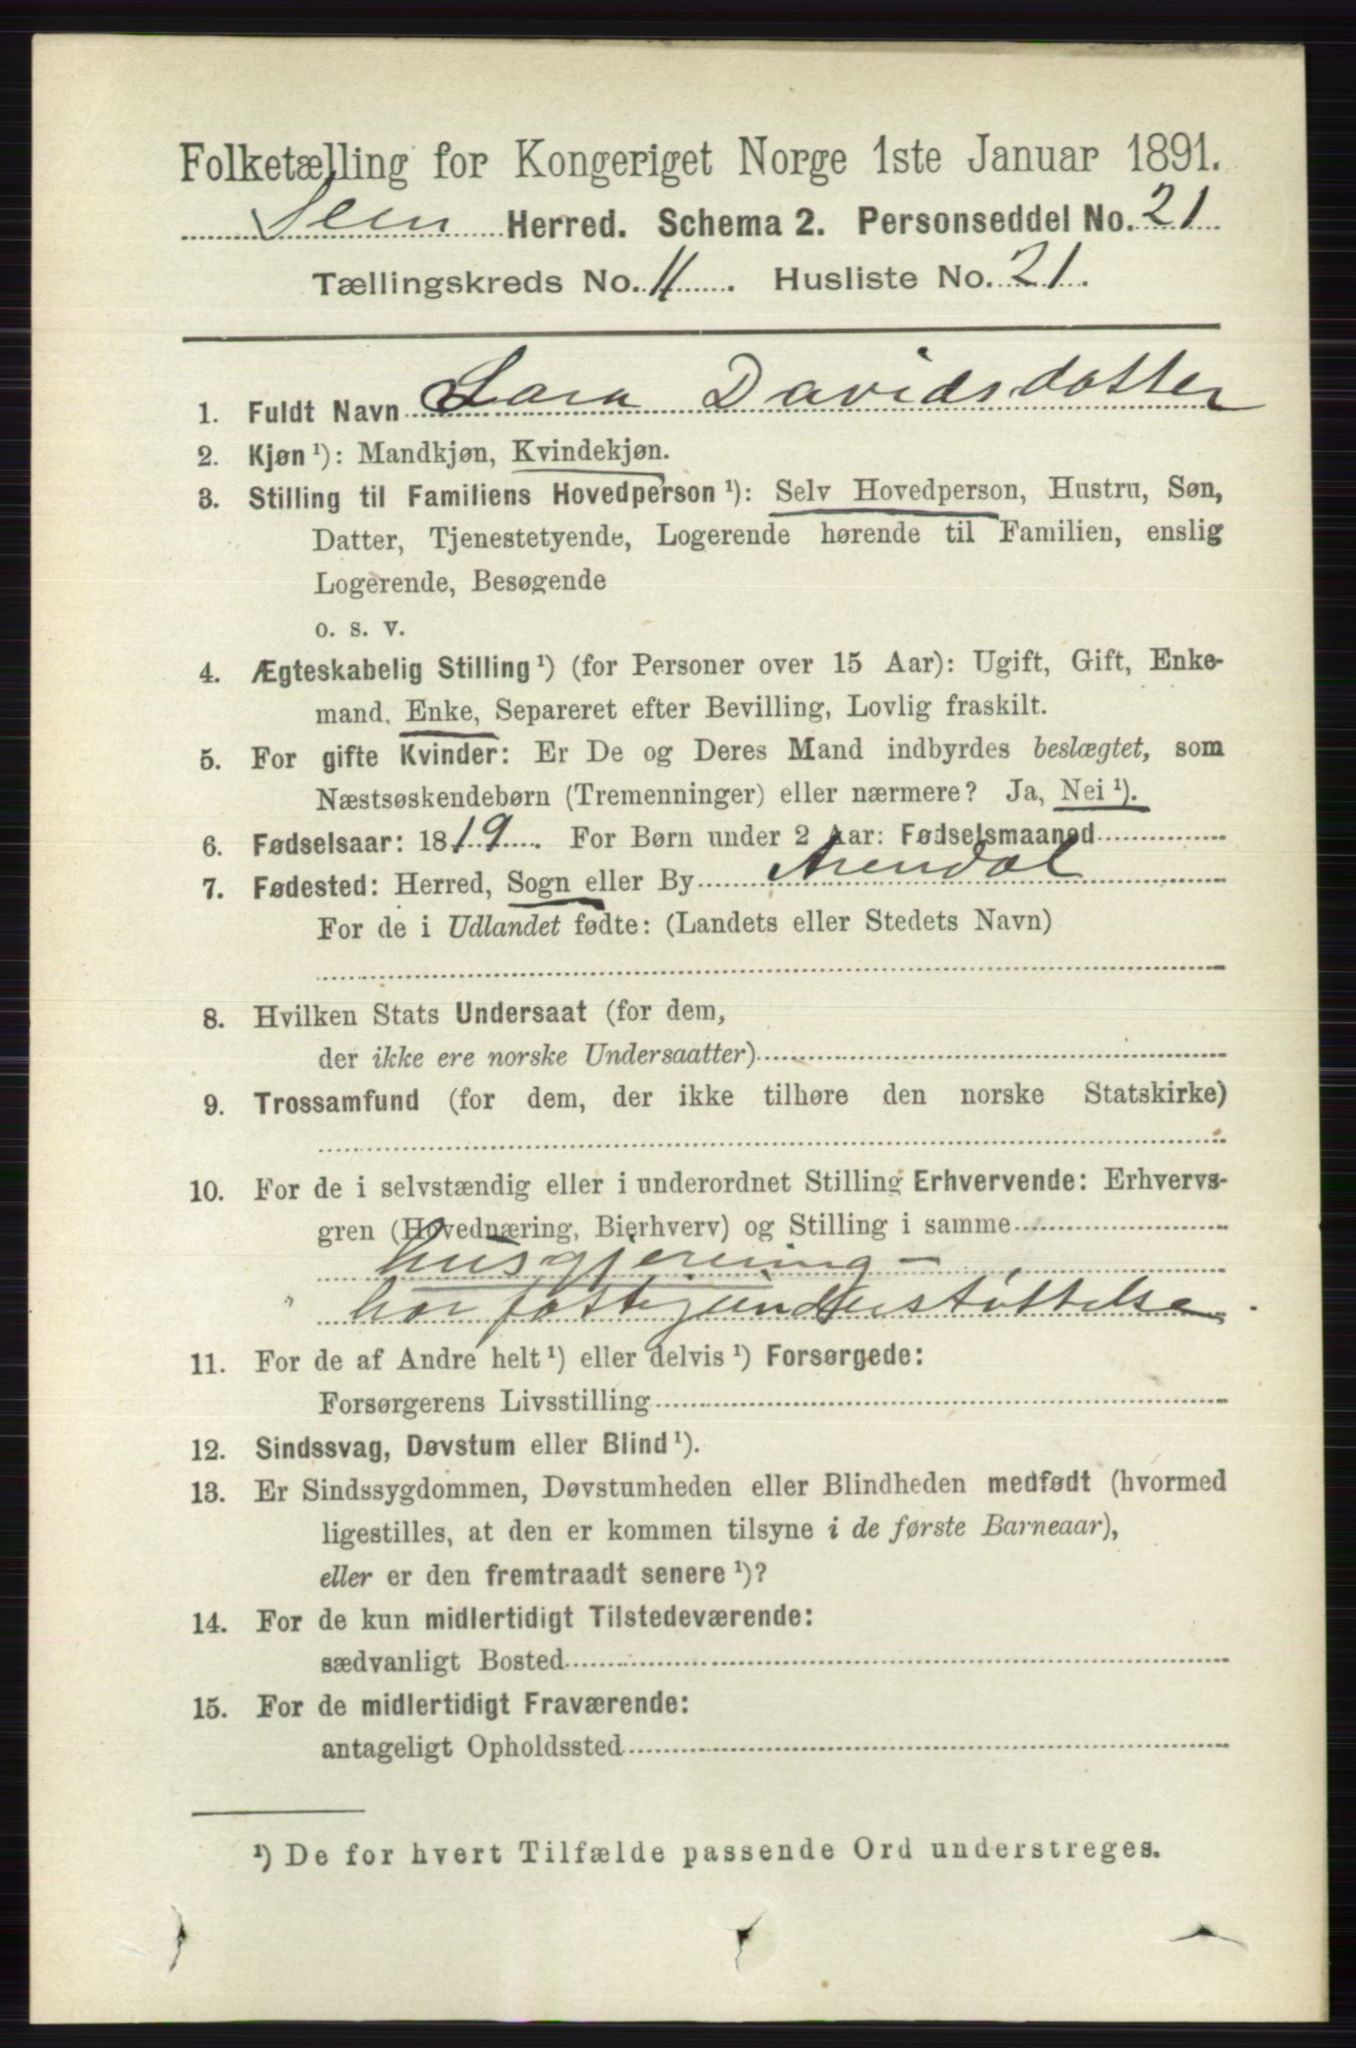 Folketælling for Kongeriget Norge 1ste Januar 1891.
Sem Herred. Schema 2. Personseddel No. 21
Tællingskreds No. 11. Husliste No. 21.
1. Fuldt Navn Lara Davidsdatter
2. Kjøn ¹): Mandkjøn, Kvindekjøn.
3. Stilling til Familiens Hovedperson ¹): Selv Hovedperson, Hustru, Søn,
Datter, Tjenestetyende, Logerende hørende til Familien, enslig
Logerende, Besøgende
o. s. v.
4. Ægteskabelig Stilling ¹) (for Personer over 15 Aar): Ugift, Gift, Enke-
mand, Enke, Separeret efter Bevilling, Lovlig fraskilt.
5. For gifte Kvinder: Er De og Deres Mand indbyrdes beslægtet, som
Næstsøskendebørn (Tremenninger) eller nærmere? Ja, Nei ¹).
6. Fødselsaar: 1819. For Børn under 2 Aar: Fødselsmaaned
7. Fødested: Herred, Sogn eller By Arendal
For de i Udlandet fødte: (Landets eller Stedets Navn)
8. Hvilken Stats Undersaat (for dem,
der ikke ere norske Undersaatter)
9. Trossamfund (for dem, der ikke tilhøre den norske Statskirke)
10. For de i selvstændig eller i underordnet Stilling Erhvervende: Erhvervs-
gren (Hovednæring, Bierhverv) og Stilling i samme
husgjerning -
har fattigunderstøttelse.
11. For de af Andre helt ¹) eller delvis ¹) Forsørgede:
Forsørgerens Livsstilling
12. Sindssvag, Døvstum eller Blind ¹).
13. Er Sindssygdommen, Døvstumheden eller Blindheden medfødt (hvormed
ligestilles, at den er kommen tilsyne i de første Barneaar),
eller er den fremtraadt senere ¹)?
14. For de kun midlertidigt Tilstedeværende:
sædvanligt Bosted
15. For de midlertidigt Fraværende:
antageligt Opholdssted
¹) De for hvert Tilfælde passende Ord understreges.